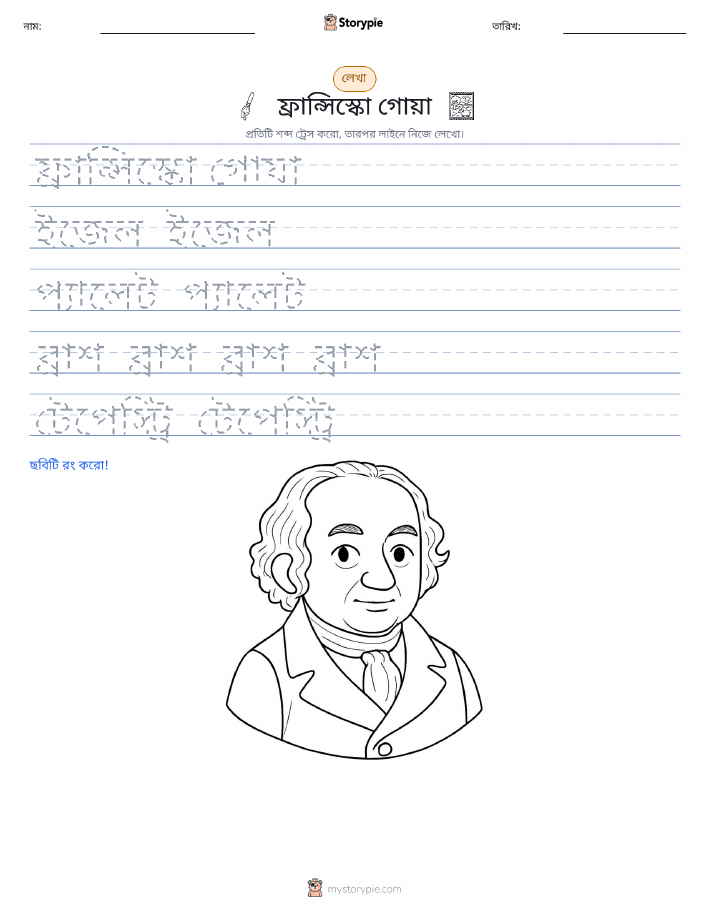 নাম:
Storypie
তারিখ:
লেখা
ফ্রান্সিস্কো গোয়া
প্রতিটি শব্দ ট্রেস করো, তারপর লাইনে নিজে লেখো।
ফ্রান্সিস্কো গোয়া
ইজেল ইজেল
প্যালেট প্যালেট
ব্রাশ ব্রাশ ব্রাশ ব্রাশ
টেপেস্ট্রি টেপেস্ট্রি
ছবিটি রং করো!
mystorypie.com